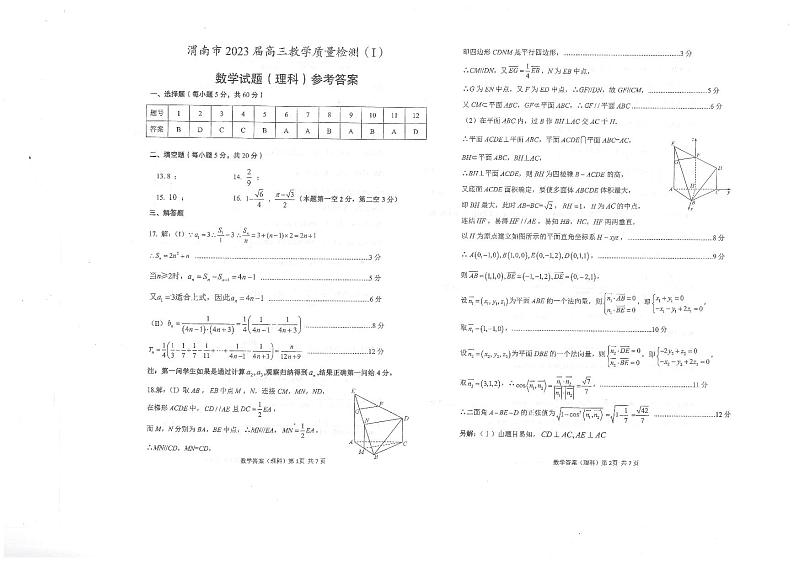 渭南市 2023 届高三教学质量检测（Ⅰ）
数学试题（理科）参考答案
一、选择题（每小题 5 分，共 60 分）
题号 1 2 3 4 5 6 7 8 9 10 11 12
答案 B D C C B A A B A B A D
二、填空题（每小题 5 分，共 20 分）
13. 8 ； 14. 2/9 ；
15. 10 ； 16. 1-√6/4 , (π-3)/2 （本题第一空 2 分，第二空 3 分）
三、解答题
17. 解：（Ⅰ）∵a₁=3∴S₁/1=3∴Sₙ/n=3+(n-1)×2=2n+1
∴Sₙ=2n²+n ……3 分
当n≥2时，aₙ=Sₙ-Sₙ₋₁=4n-1 ……5 分
又a₁=3适合上式，因此aₙ=4n-1 ……6 分
（Ⅱ）bₙ=1/((4n-1)·(4n+3))=1/4(1/(4n-1)-1/(4n+3)) ……8 分
Tₙ=1/4(1/3-1/7+1/7-1/11+…+1/(4n-1)-1/(4n+3))=n/(12n+9) ……12 分
注：第一问学生如果是通过计算a₂,a₃,观察归纳得到aₙ,结果正确第一问给 4 分。
18.解：（Ⅰ）取 AB，EB中点 M，N，连接 CM，MN，ND，
在梯形 ACDE 中，CD//AE 且DC=1/2 EA，
而 M，N 分别为 BA，BE 中点，∴MN//EA，MN=1/2 EA，
∴MN//CD，MN=CD，
E F G D N A C M B
数学答案（理科）第 1页 共 7 页
即四边形 CDNM 是平行四边形，……3 分
∴CM//DN，又EG=1/4 EB，N 为 EB 中点，
∴G 为 EN 中点，又 F 为 ED 中点，∴GF//DN，故 GF//CM，……5 分
又 CM⊂平面 ABC，GF⊄平面 ABC，∴GF//平面 ABC ……6 分
（2）在平面 ABC 内，过 B 作 BH⊥AC 交 AC 于 H.
∴平面 ACDE⊥平面 ABC，平面 ACDE∩平面 ABC=AC，
BH⊂平面 ABC，BH⊥AC，
∴BH⊥平面 ACDE，则 BH 为四棱锥 B-ACDE 的高，
又底面 ACDE 面积确定，要使多面体 ABCDE 体积最大，
即 BH 最大，此时 AB=BC=√2，BH=1，H 为AC的中点，
连结 HF，易得 HF//AE，易知 HB，HC，HF 两两垂直，
以 H 为原点建立如图所示的平面直角坐标系 H-xyz，……8 分
∴A(0,-1,0),B(1,0,0),E(0,-1,2),D(0,1,1)，……9 分
则AB=(1,1,0),BE=(-1,-1,2),DE=(0,-2,1)，
设n₁=(x₁,y₁,z₁)为平面 ABE 的一个法向量，则{n₁·AB=0 n₁·BE=0，即{x₁+y₁=0 -x₁-y₁+2z₁=0，
取n₁=(1,-1,0)，……10 分
设n₂=(x₂,y₂,z₂)为平面 DBE 的一个法向量，则{n₂·DE=0 n₂·BE=0，即{-2y₂+z₂=0 -x₂-y₂+2z₂=0，
取n₂=(3,1,2)，∴cos⟨n₁,n₂⟩=n₁·n₂/|n₁||n₂|=√7/7，……11 分
∴二面角 A-BE-D 的正弦值为√(1-cos²⟨n₁,n₂⟩)=√(1-1/7)=√42/7 ……12 分
另解：（Ⅰ）由题目易知，CD⊥AC,AE⊥AC
数学答案（理科）第 2页 共 7 页